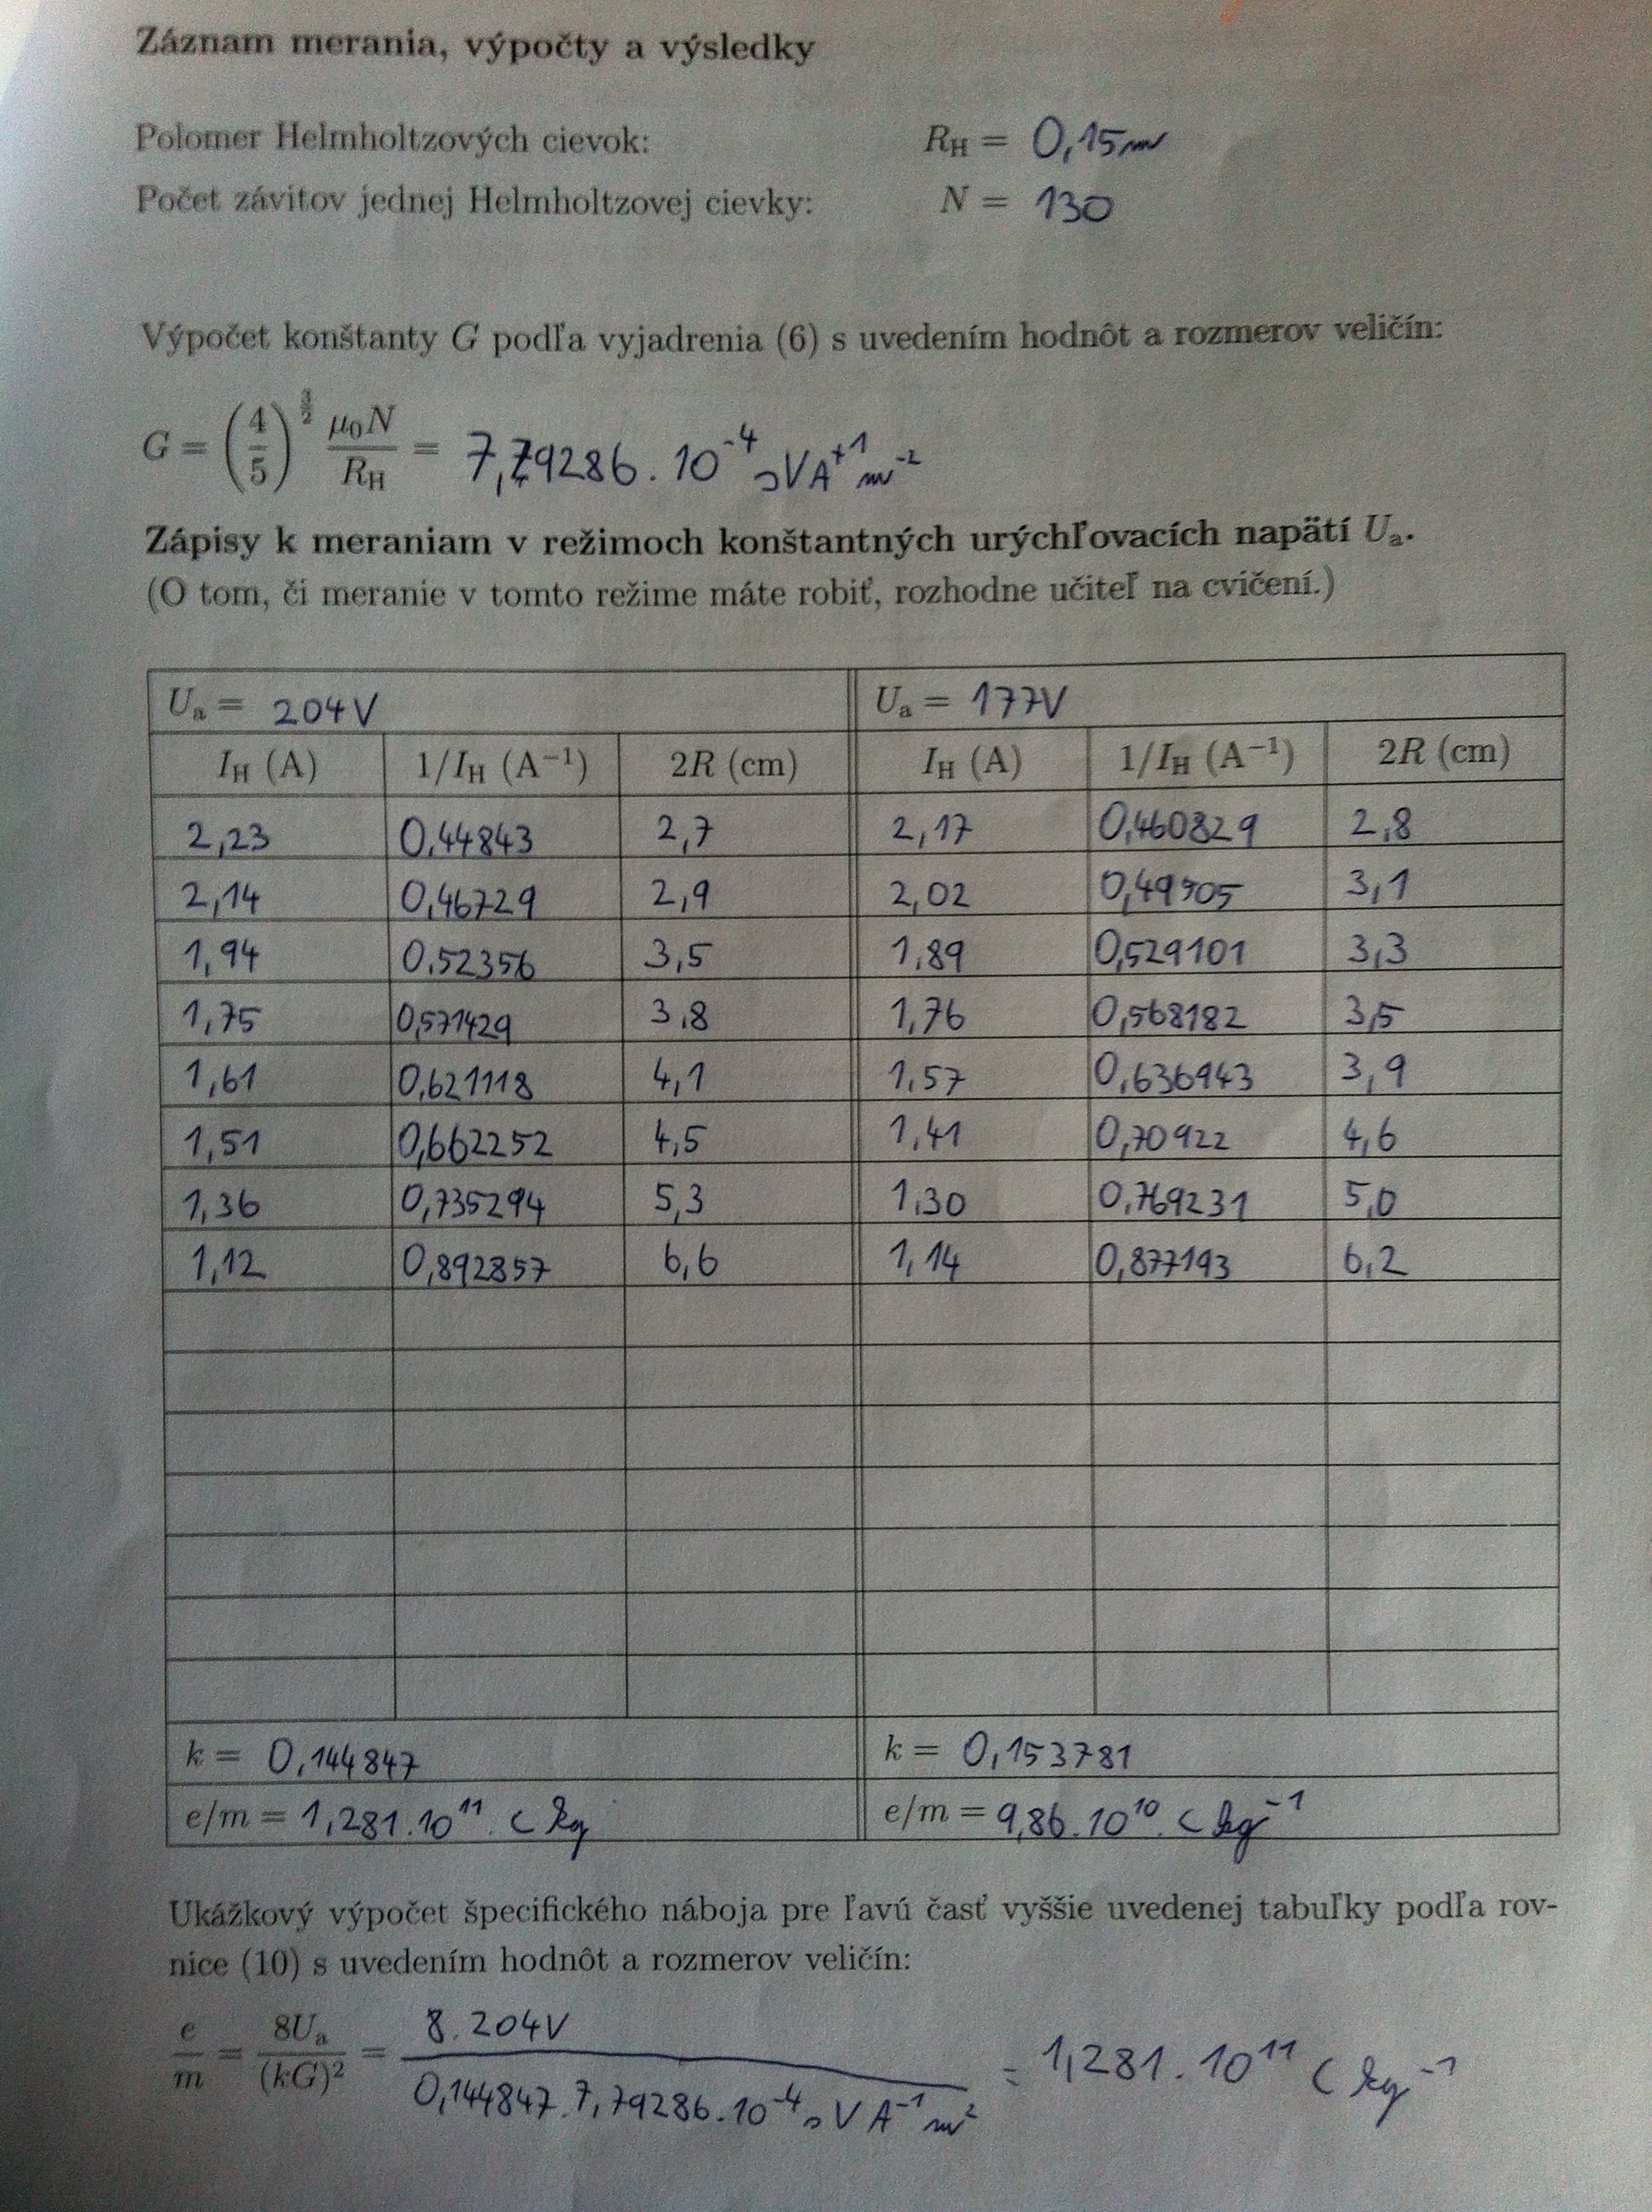 Záznam merania, výpočty a výsledky
Polomer Helmholtzových cievok: R_H = 0,15m
Počet závitov jednej Helmholtzovej cievky: N = 130
Výpočet konštanty G podľa vyjadrenia (6) s uvedením hodnôt a rozmerov veličín:
G = (4/5)^{3/2} μ₀N/R_H = 7,79286 . 10⁻⁴ sVA⁺¹m⁻²
Zápisy k meraniam v režimoch konštantných urýchľovacích napätí Uₐ.
(O tom, či meranie v tomto režime máte robiť, rozhodne učiteľ na cvičení.)
Uₐ = 204V Uₐ = 177V
I_H (A) 1/I_H (A⁻¹) 2R (cm) I_H (A) 1/I_H (A⁻¹) 2R (cm)
2,23 0,44843 2,7 2,17 0,460829 2,8
2,14 0,46729 2,9 2,02 0,49505 3,1
1,94 0.52356 3,5 1,89 0,529101 3,3
1,75 0,571429 3,8 1,76 0,568182 3,5
1,61 0,621118 4,1 1,57 0,636943 3,9
1,51 0,662252 4,5 1,41 0,70922 4,6
1,36 0,735294 5,3 1,30 0,769231 5,0
1,12 0,892857 6,6 1,14 0,877193 6,2
k = 0,144847 k = 0,153781
e/m = 1,281.10¹¹ C kg e/m = 9,86.10¹⁰ C kg⁻¹
Ukážkový výpočet špecifického náboja pre ľavú časť vyššie uvedenej tabuľky podľa rov-
nice (10) s uvedením hodnôt a rozmerov veličín:
e/m = 8Uₐ/(kG)² = 8.204V / 0,144847.7,79286.10⁻⁴ sVA⁻¹m² = 1,281.10¹¹ C kg⁻¹